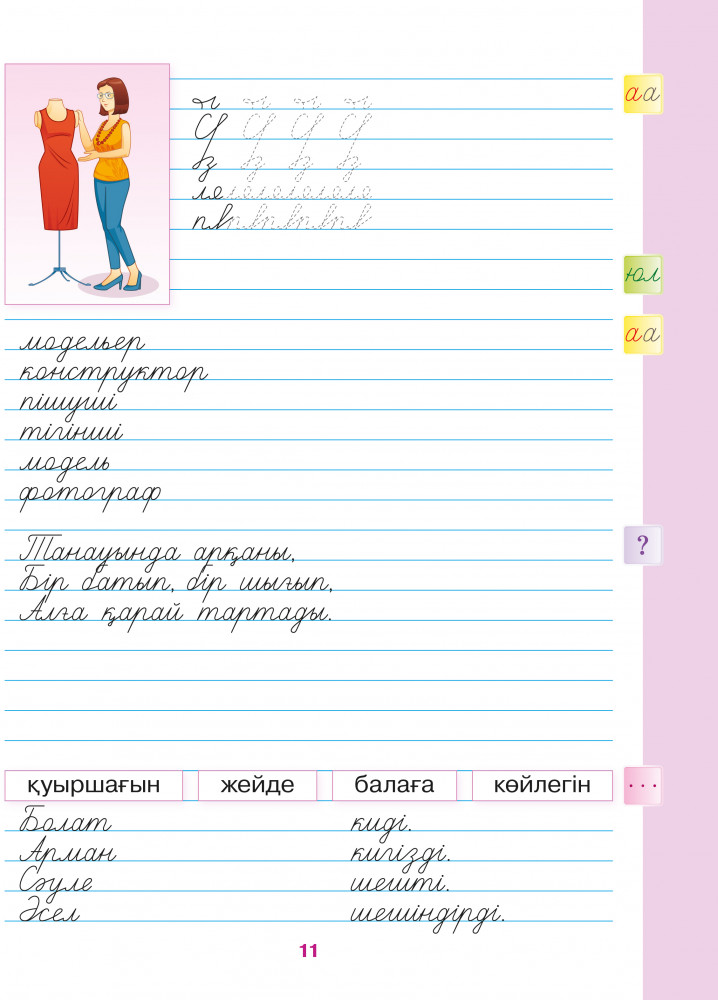 аа
юл
аа
модельер
конструктор
пішуші
тігінші
модель
фотограф
?
Танауында арқаны,
Бір батып, бір шығып,
Алға қарай тартады.
қуыршағын жейде балаға көйлегін
...
Болат киді.
Арман кигізді.
Сәуле шешті.
Әсел шешіндірді.
11